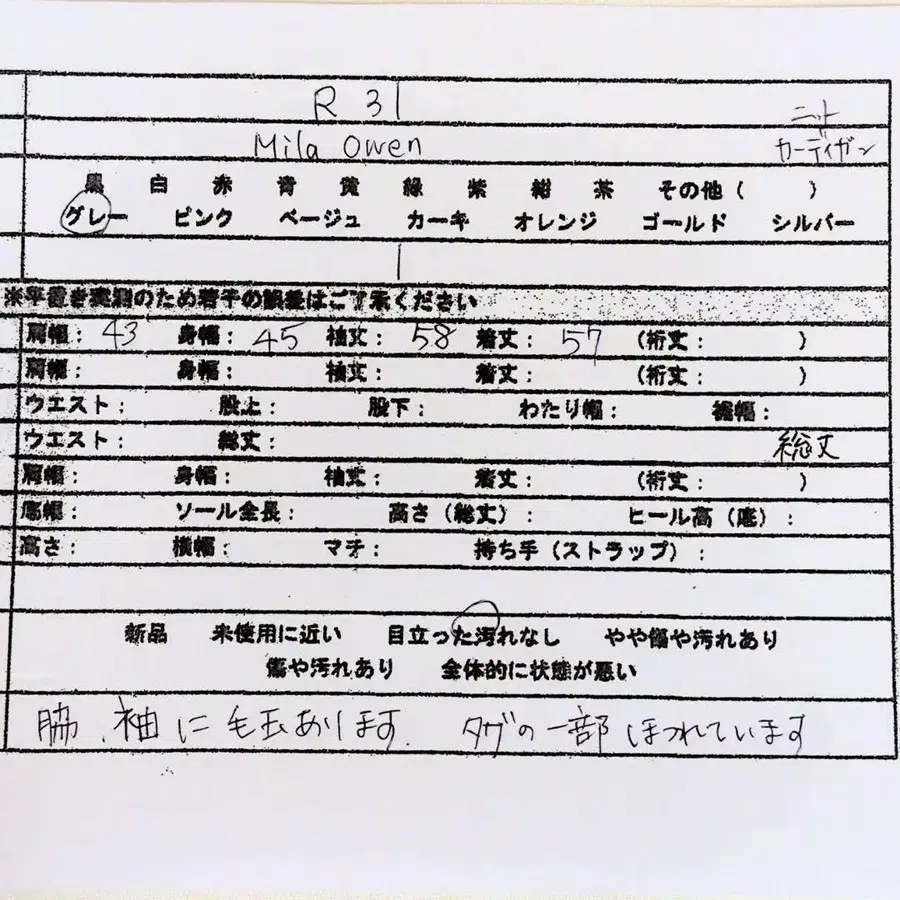 R 31
ニット
Mila Owen
カーディガン
黒 白 赤 青 黄 緑 紫 紺 茶 その他( )
グレー ピンク ベージュ カーキ オレンジ ゴールド シルバー
※平置き実測のため若干の誤差はご了承ください
肩幅: 43 身幅: 45 袖丈: 58 着丈: 57 (裄丈: )
肩幅: 身幅: 袖丈: 着丈: (裄丈: )
ウエスト: 股上: 股下: わたり幅: 裾幅:
ウエスト: 総丈: 総丈
肩幅: 身幅: 袖丈: 着丈: (裄丈: )
底幅: ソール全長: 高さ(総丈): ヒール高(底):
高さ: 横幅: マチ: 持ち手(ストラップ):
新品 未使用に近い 目立った汚れなし やや傷や汚れあり
傷や汚れあり 全体的に状態が悪い
脇、袖に毛玉あります. タグの一部ほつれています